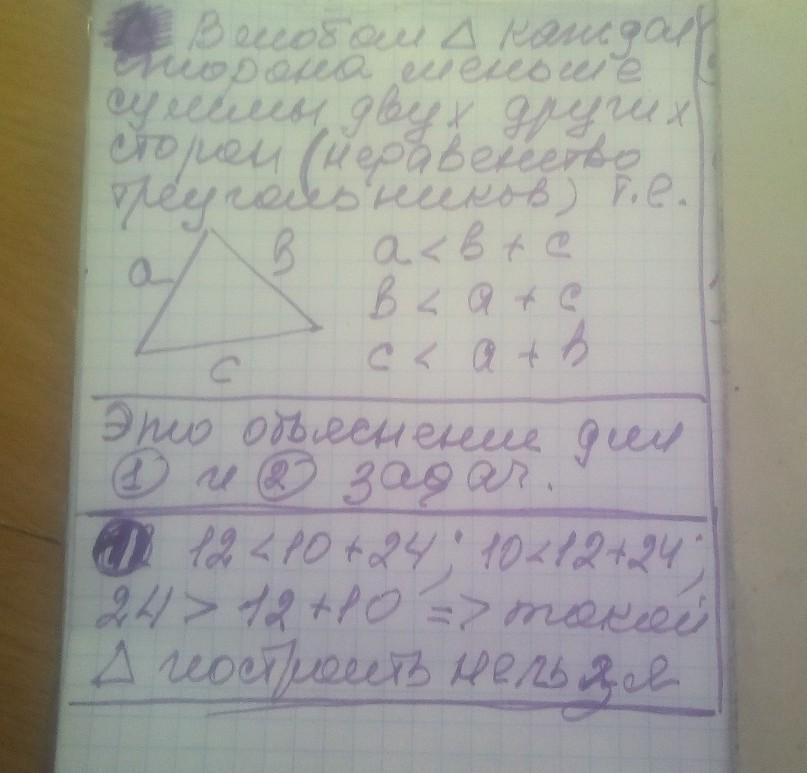 В любом △ каждая
сторона меньше
суммы двух других
сторон (неравенство
треугольников) т.е.
a b a < b + c
b < a + c
c c < a + b
Это объяснение для
① и ② задач.
1 12 < 10 + 24; 10 < 12 + 24;
24 > 12 + 10 => такой
△ построить нельзя